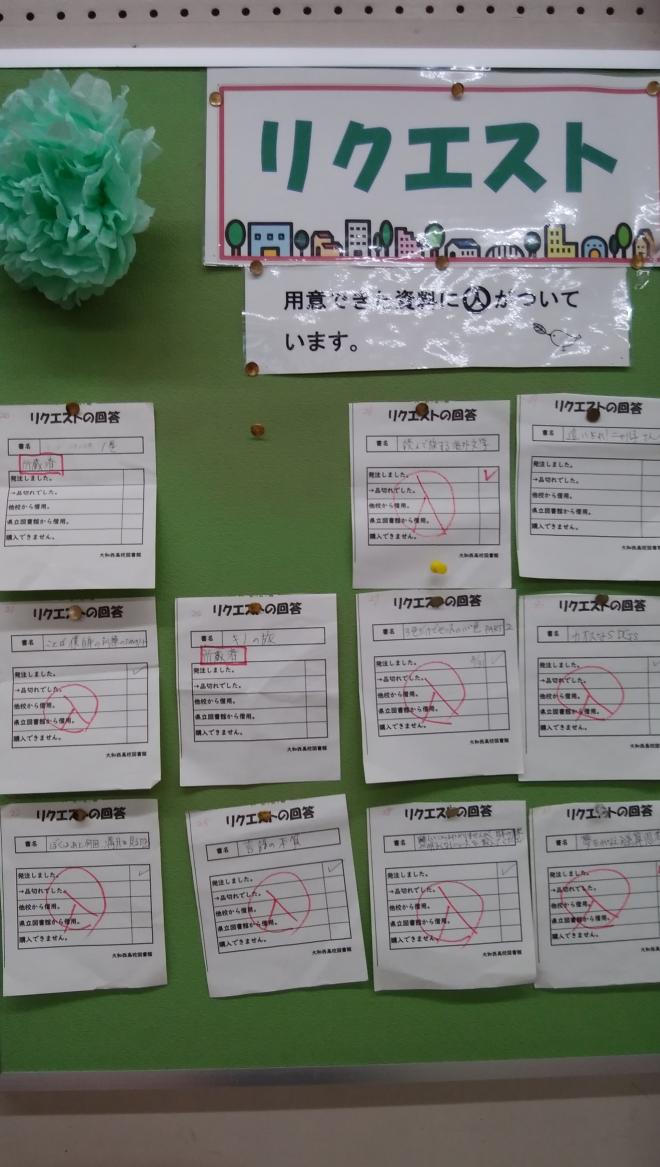 リクエスト
用意できた資料に㊅がついて
います。
リクエストの回答
書名 1巻
所蔵済
発注しました。
→品切れでした。
他校から借用。
県立図書館から借用。
購入できません。
大和西高校図書館
リクエストの回答
書名 読んで旅する海外文学
発注しました。
→品切れでした。
他校から借用。
県立図書館から借用。
購入できません。
大和西高校図書館
リクエストの回答
書名
発注しました。
→品切れでした。
他校から借用。
県立図書館から借用。
購入できません。
大和西高校図
リクエストの回答
書名 ことば
発注しました。
→品切れでした。
他校から借用。
県立図書館から借用。
購入できません。
大和西高校図書館
リクエストの回答
書名 キノの旅
所蔵済
発注しました。
→品切れでした。
他校から借用。
県立図書館から借用。
購入できません。
大和西高校図書館
リクエストの回答
書名 PART 2
発注しました。
→品切れでした。
他校から借用。
県立図書館から借用。
購入できません。
大和西高校図書館
リクエストの回答
書名 カオスなSDGs
発注しました。
→品切れでした。
他校から借用。
県立図書館から借用。
購入できません。
大和西高校図
リクエストの回答
書名 ぼくはあと何回、満月を見るだ
発注しました。
→品切れでした。
他校から借用。
県立図書館から借用。
購入できません。
大和西高校図書館
リクエストの回答
書名 言語の本質
発注しました。
→品切れでした。
他校から借用。
県立図書館から借用。
購入できません。
大和西高校図書館
リクエストの回答
書名
発注しました。
→品切れでした。
他校から借用。
県立図書館から借用。
購入できません。
大和西高校図書館
リクエストの回答
書名 夢をかなえる
発注しました。
→品切れでした。
他校から借用。
県立図書館から借用。
購入できません。
大和西高校図書館